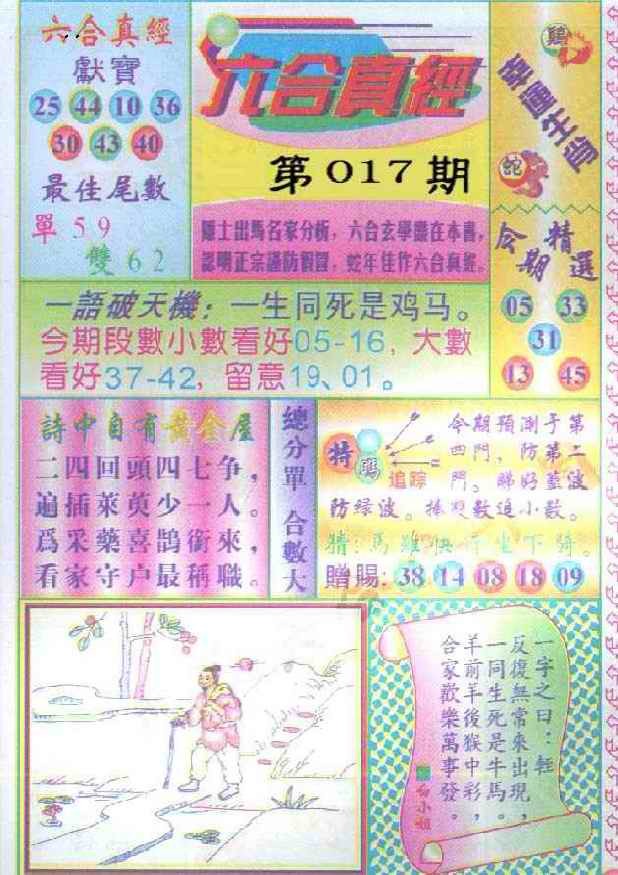 六合真經
獻寶
25 44 10 36
30 43 40
最佳尾數
單 5 9
雙 6 2
六合真經
第017期
隱士出馬名家分析，六合玄學盡在本書，
認明正宗謹防假冒，蛇年佳作六合真經。
幸運生肖
鷄
蛇
今期精選
05 33
31
13 45
一語破天機：一生同死是鸡马。
今期段數小數看好05-16，大數
看好37-42，留意19、01。
詩中自有黃金屋
二四回頭四七争，
遍插萊萸少一人。
爲采藥喜鹊銜來，
看家守户最稱職。
總分單 合數大
特碼
追踪
今期預測于第
四門，防第二
門。睇好藍波
防緑波。捧双数追小数。
猜：馬雖快行坐下騎。
贈賜：38 14 08 18 09
一字之曰：輕
反復無常來出現，
一同生死是牛馬。
羊前羊後猴中彩，
合家歡樂萬事發。
白小姐